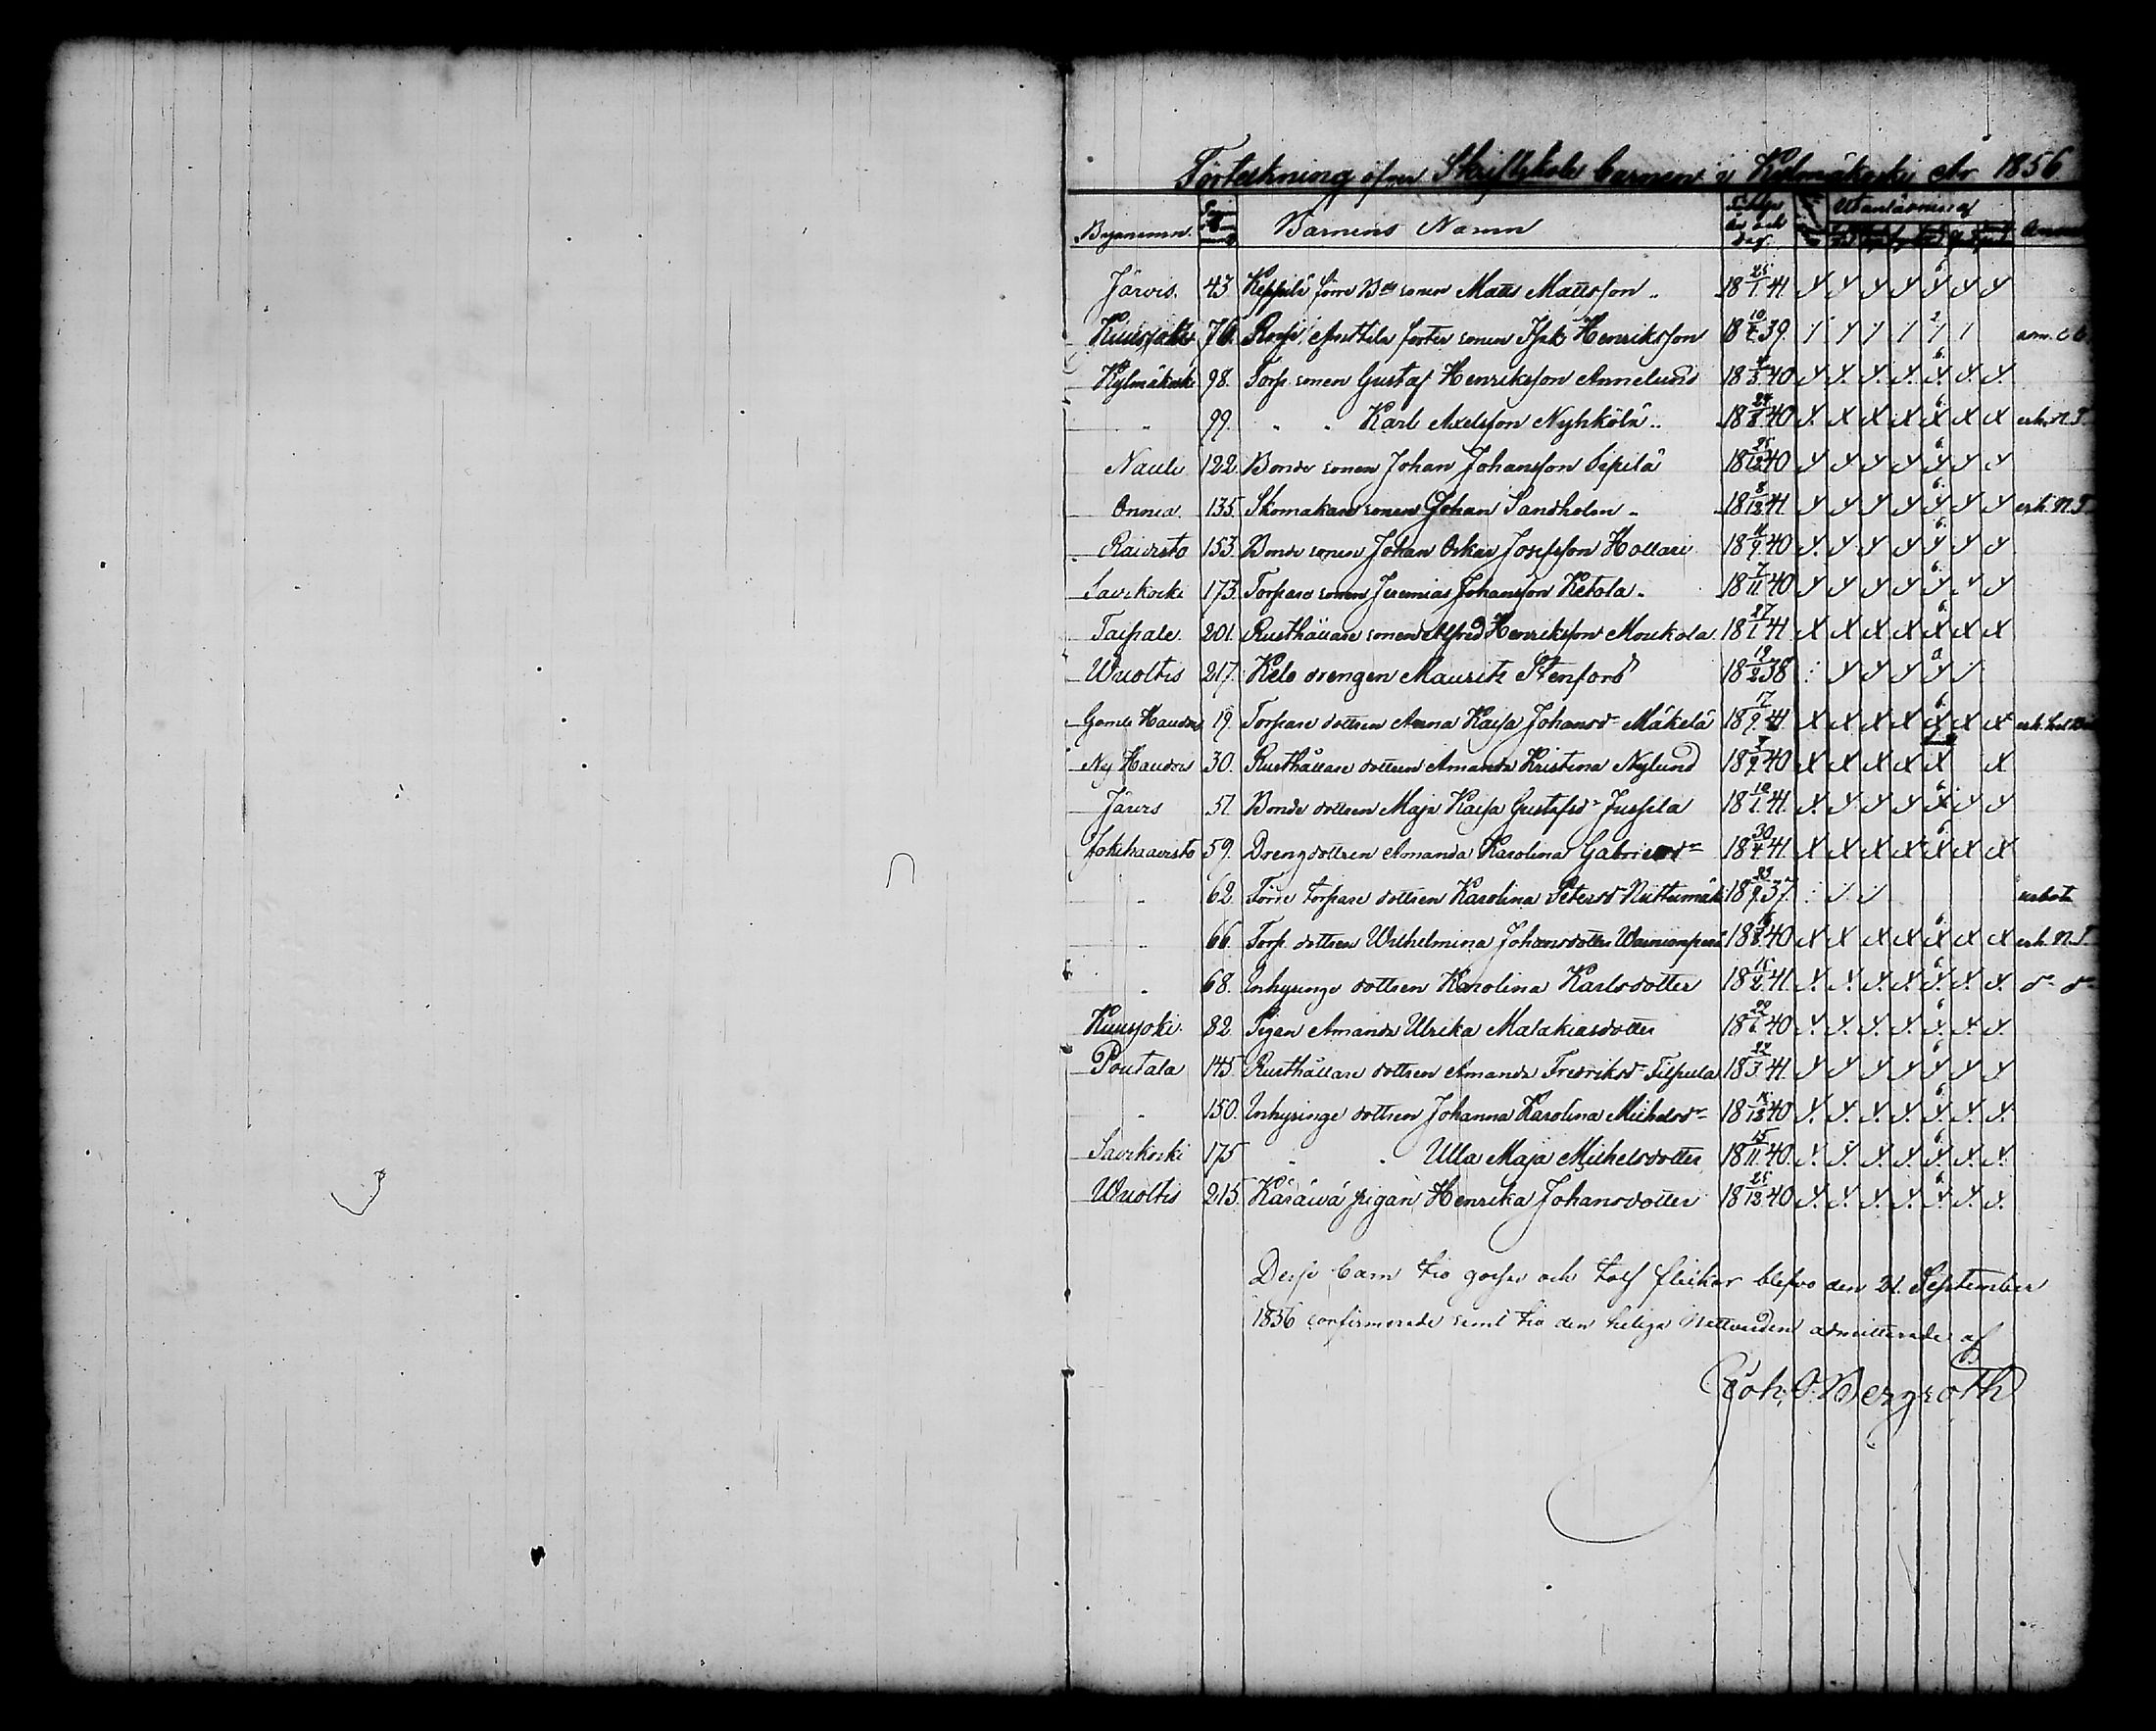 Förteckning öfver Skriftskole barnen i Kylmäkoski År 1856
Byanamn. Barnens Namn Födelse År och dag Utanläsning af Anm
Järvis. 43 Keppilä förre Bde sonen Matts Mattsson 18 25/1 41. 6
Kuusjoki 76. foster sonen Isak Henriksson 18 10/ 39. 2
Kylmäkoski 98. Torp. sonen Gustaf Henriksson Annelund 18 4/3 40 6.
" 99. " " Karl Axelsson Nyhkölä 18 24/8 40 6. erh. N. T.
Nauli 122. Bonde sonen Johan Johansson Sipilä 18 25/12 40 6.
Onnia. 135. Skomakare sonen Johan Sandholm 18 8/12 41 6. erh. N. T.
Raivisto 153. Bonde sonen Johan Oskar Josefsson Hollari 18 11/9 40 6.
Savikoski 173. Torpare sonen Jeremias Johansson Ketola. 18 7/11 40 6.
Taipale. 201. Rusthållare sonen Alfred Henriksson Moukola. 18 27/1 41 6.
Wuoltis 217. Kelo drengen Mauritz Stenfors 18 19/2 38
Gamle Haudois 19. Torpare dottren Anna Kaisa Johansdr Mäkelä 18 17/9 41. 6.
Ny Haudois 30. Rusthållare dottren Amanda Kristina Nylund 18 40
Järvis 51. Bonde dottren Maja Kaisa Gustafsdr Jussila 18 10/1 41. 6.
Jokihaavisto 59. Drengdottren Amanda Karolina Gabrielsdr 18 30/4 41. 6.
" 62. Förre torpare dottren Karolina Petersdr Niittumäki 18 23/9 37.
" 66. Torp. dottren Wilhelmina Johansdotter Wainionpää 18 40 6. erh. N. T.
" 68. Inhysinge dottren Karolina Karlsdotter 18 15/2 41. 6. do do
Kuusjoki. 82. Pigan Amanda Ulrika Malakiasdotter 18 40 6
Poutala 145. Rusthållare dottren Amanda Fredriksdr Filpula 18 22/3 41. 6
" 150. Inhysinge dottren Johanna Karolina Michelsdr 18 40 6.
Savikoski 175 " " Ulla Maja Michelsdotter 18 15/11 40. 6.
Wuoltis 215. Käräwä pigan Henrika Johansdotter 18 25/12 40 6.
Desse barn tio gossar och tolf flickor blefvo den 21. September
1856 confirmerade samt till den heliga Nattvarden admitterade af
Joh. O. Bergroth